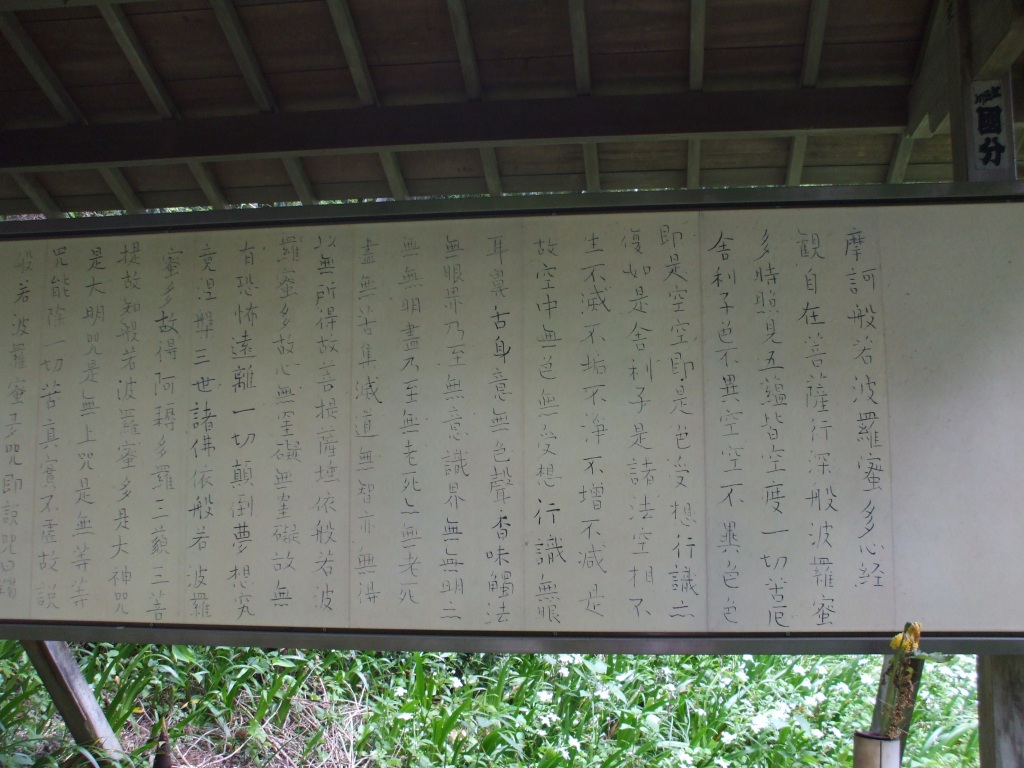 摩訶般若波羅蜜多心経
観自在菩薩行深般波羅蜜
多時照見五蘊皆空度一切苦厄
舎利子色不異空空不異色色
即是空空即是色受想行識亦
復如是舎利子是諸法空相不
生不滅不垢不浄不増不減是
故空中無色無受想行識無眼
耳鼻舌身意無色聲香味觸法
無眼界乃至無意識界無無明亦
無無明盡乃至無老死亦無老死
盡無苦集滅道無智亦無得
以無所得故菩提薩埵依般若波
羅蜜多故心無罣礙無罣礙故無
有恐怖遠離一切顛倒夢想究
竟涅槃三世諸佛依般若波羅
蜜多故得阿耨多羅三藐三菩
提故知般若波羅蜜多是大神咒
是大明咒是無上咒是無等等
咒能除一切苦真實不虚故説
般若波羅蜜多咒即説咒曰
國分